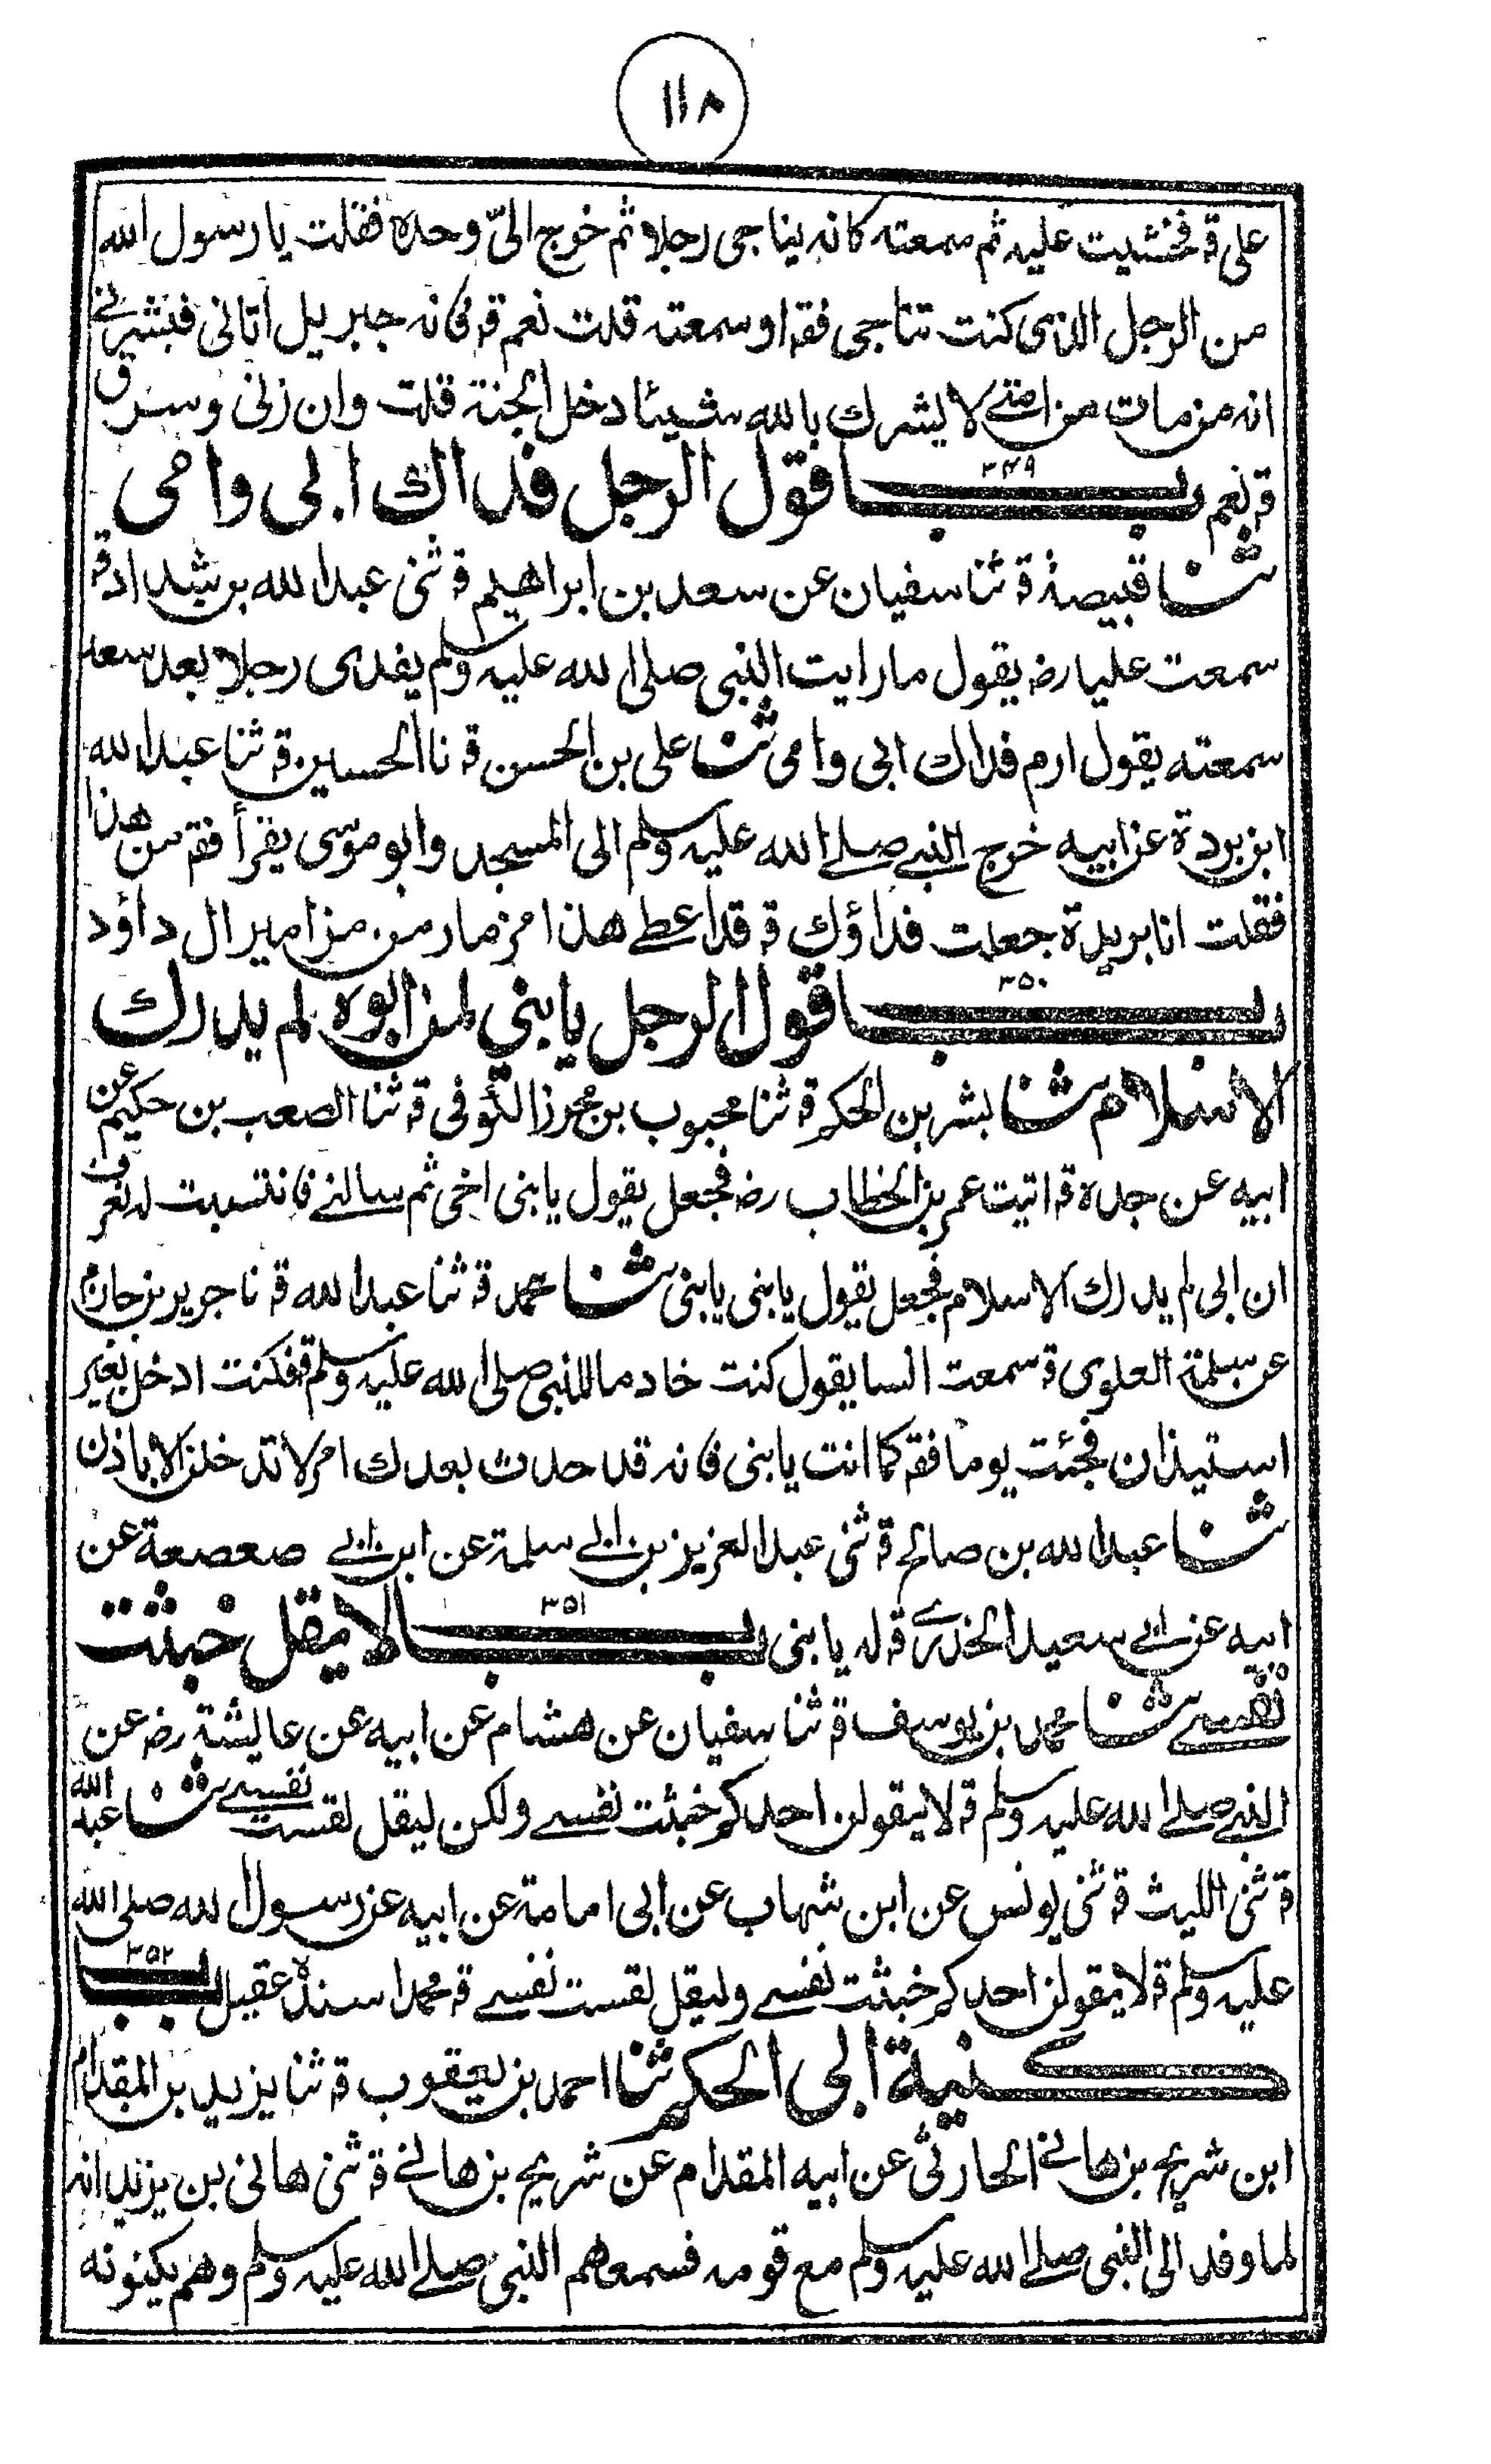 ١١٨
على قـ فخشيت عليه ثم سمعته كانه يناجى رجلا ثم خرج الىّ وحده فقلت يا رسول الله
من الرجل الذى كنت تناجى فقـ او سمعته قلت نعم قـ فانه جبريل اتانى فبشرنى
انه من مات من امتى لا يشرك بالله شيئا دخل الجنة قلت وان زنى وسرق
قـ نعم باب ٣٤٩ قول الرجل فداك ابى وامى
ثنا قبيصة قـ ثنا سفيان عن سعد بن ابراهيم قـ ثنى عبد الله بن شداد قـ
سمعت عليا رضـ يقول ما رايت النبى صلى الله عليه وسلم يفدى رجلا بعد سعد
سمعته يقول ارم فداك ابى وامى ثنا على بن الحسن قـ نا الحسين قـ ثنا عبد الله
ابن بردة عن ابيه خرج النبى صلى الله عليه وسلم الى المسجد وابو موسى يقرأ فقـ من هذا
فقلت انا بريدة جعلت فداؤك قـ قد اعطى هذا مزمار من مزامير ال داؤد
باب ٣٥٠ قول الرجل يا بنى لمن ابوه لم يدرك
الاسلام ثنا بشر بن الحكم قـ ثنا محبوب بن محرز التوفى قـ ثنا الصعب بن حكيم عن
ابيه عن جده قـ اتيت عمر بن الخطاب رضـ فجعل يقول يا بنى اخى ثم سالنى فانتسبت له فعرف
ان ابى لم يدرك الاسلام فجعل يقول يا بنى يا بنى ثنا محمد قـ ثنا عبد الله قـ نا جرير بن حازم
عن سلمة العلوى قـ سمعت انسا يقول كنت خادما للنبى صلى الله عليه وسلم قـ فكنت ادخل بغير
استيذان فجئت يوما فقـ كما انت يا بنى فانه قد حدث بعدك امر لا تدخلن الا باذن
ثنا عبد الله بن صالح قـ ثنى عبد العزيز بن ابى سلمة عن ابن ابى صعصعة عن
ابيه عن ابى سعيد الخدرى قـ له يا بنى باب ٣٥١ لا يقل خبثت
نفسى ثنا محمد بن يوسف قـ ثنا سفيان عن هشام عن ابيه عن عايشة رضـ عن
النبى صلى الله عليه وسلم قـ لا يقولن احدكم خبثت نفسى ولكن ليقل لقست نفسى ثنا عبد الله
قـ ثنى الليث قـ ثنى يونس عن ابن شهاب عن ابى امامة عن ابيه عن رسول الله صلى الله
عليه وسلم قـ لا يقولن احدكم خبثت نفسى وليقل لقست نفسى قـ محمد اسنده عقيل باب ٣٥٢
كنية ابى الحكم ثنا احمد بن يعقوب قـ ثنا يزيد بن المقدام
ابن شريح بن هانى الحارثى عن ابيه المقدام عن شريح بن هانى قـ ثنى هانى بن يزيد انه
لما وفد الى النبى صلى الله عليه وسلم مع قومه فسمعهم النبى صلى الله عليه وسلم وهم يكنونه